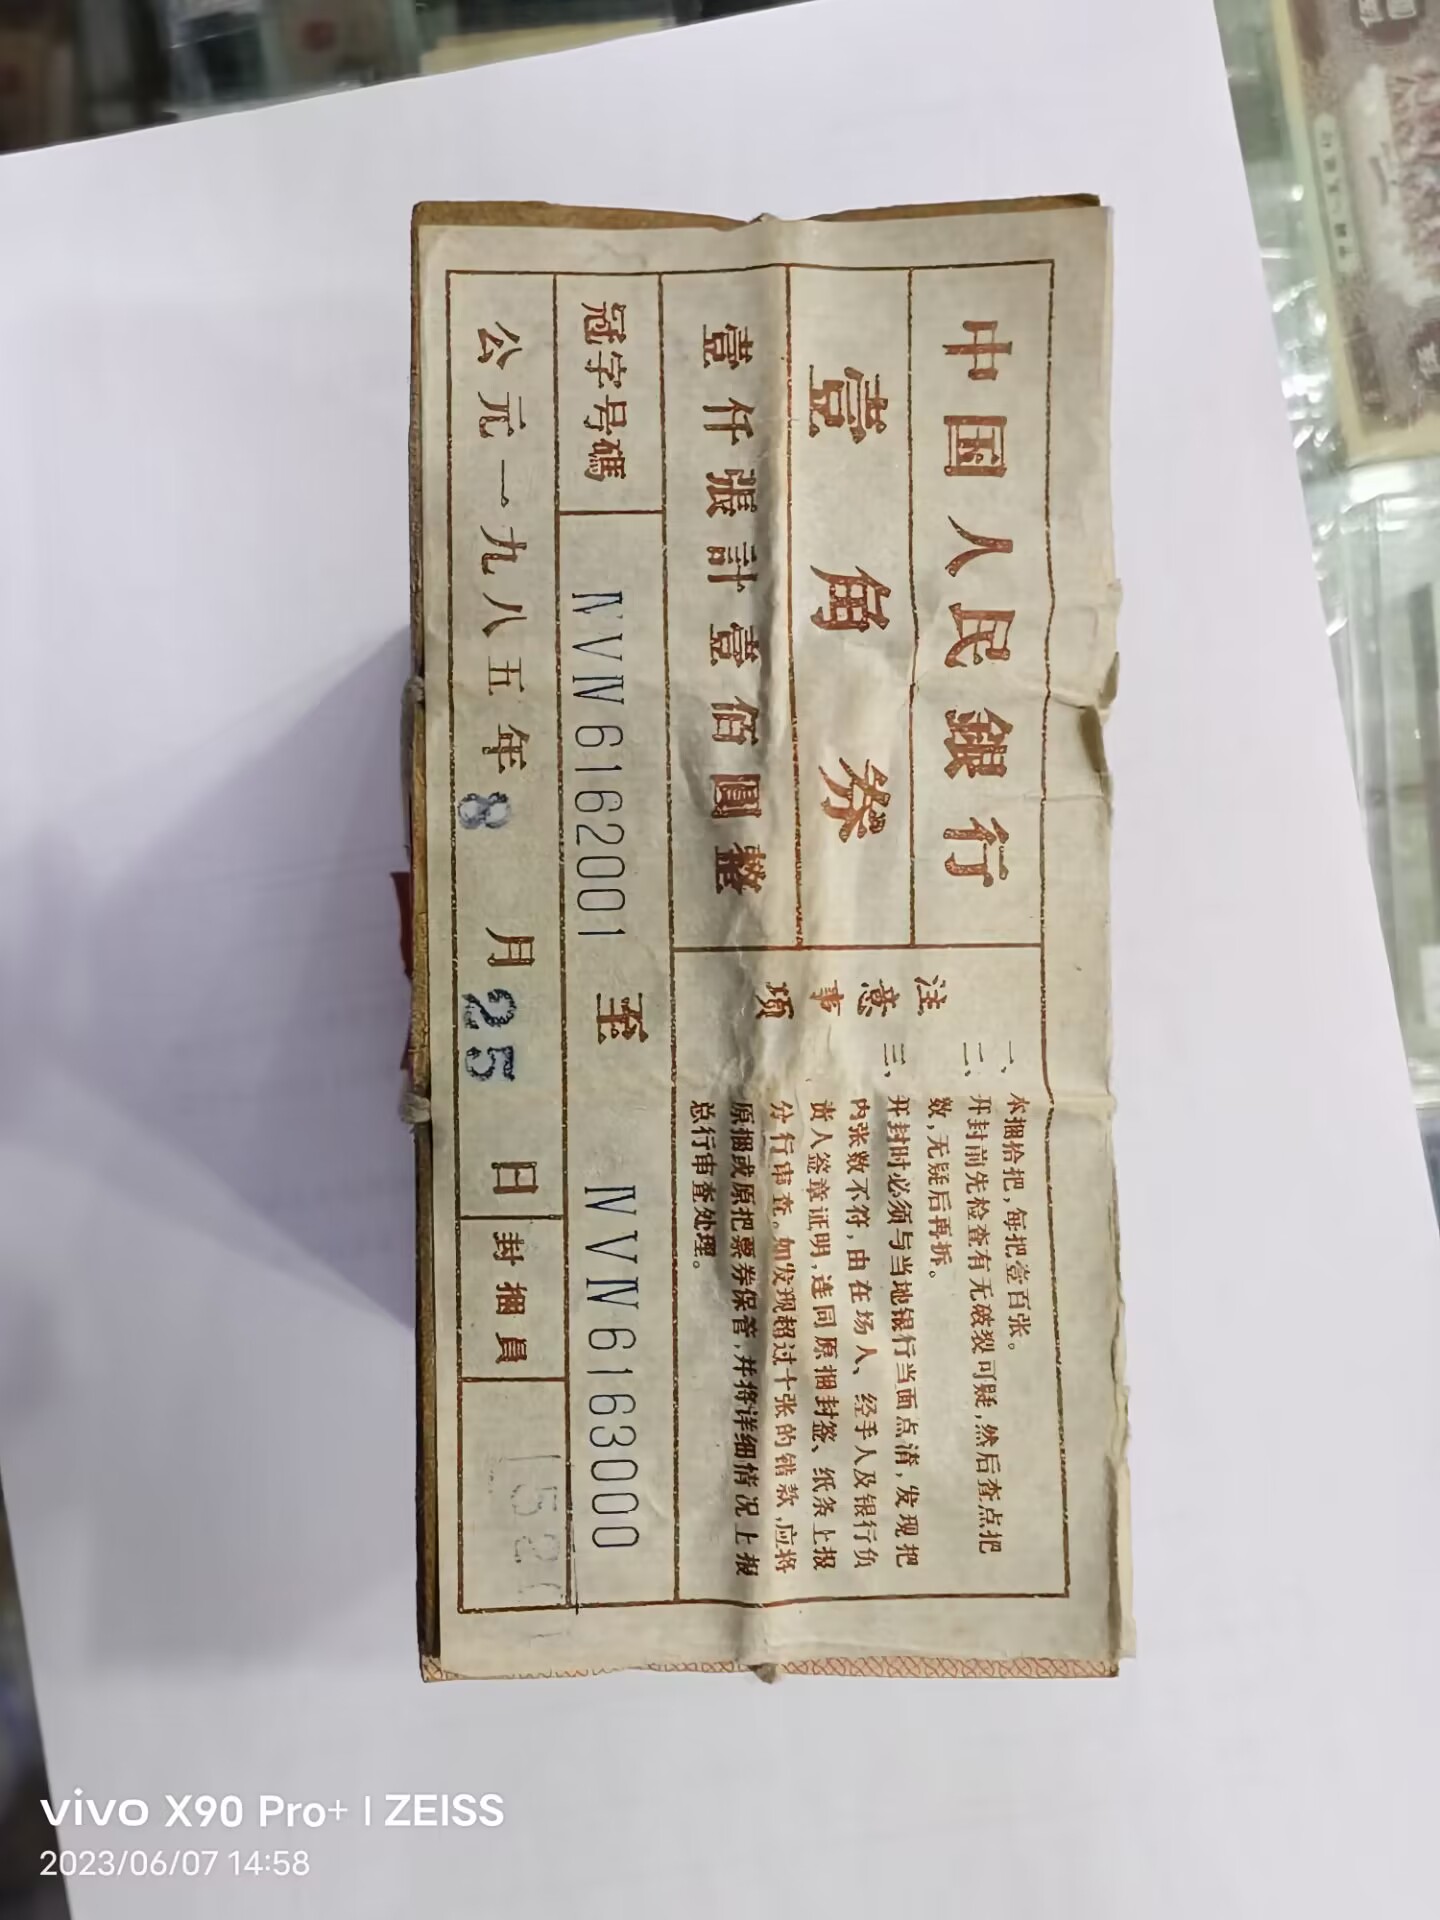 中国人民銀行
壹角券
壹仟張計壹佰圓整
注意事项
一、本捆拾把，每把壹百张。
二、开封前先检查有无破裂可疑，然后查点把
数，无疑后再拆。
三、开封时必须与当地银行当面点清，发现把
内张数不符，由在场人、经手人及银行负
责人签章证明，连同原捆封签、纸条上报
分行审查。如发现超过十张的错款，应将
原捆或原把票券保管，并将详细情况上报
总行审查处理。
冠字号碼
ⅣⅤⅣ6162001 至 ⅣⅤⅣ6163000
公元一九八五年8月25日
封捆員
vivo X90 Pro+ | ZEISS
2023/06/07 14:58